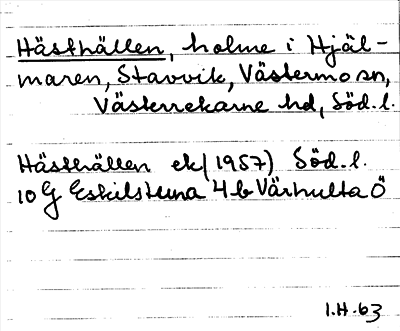 Hästhällen, holme i Hjäl-
maren, Stavvik, Västermo sn,
Västerrekarne hd, Söd.l.
Hästhällen ek (1957) Söd.l.
10 G Eskilstuna 4 b Värhulta Ö
I.H.63